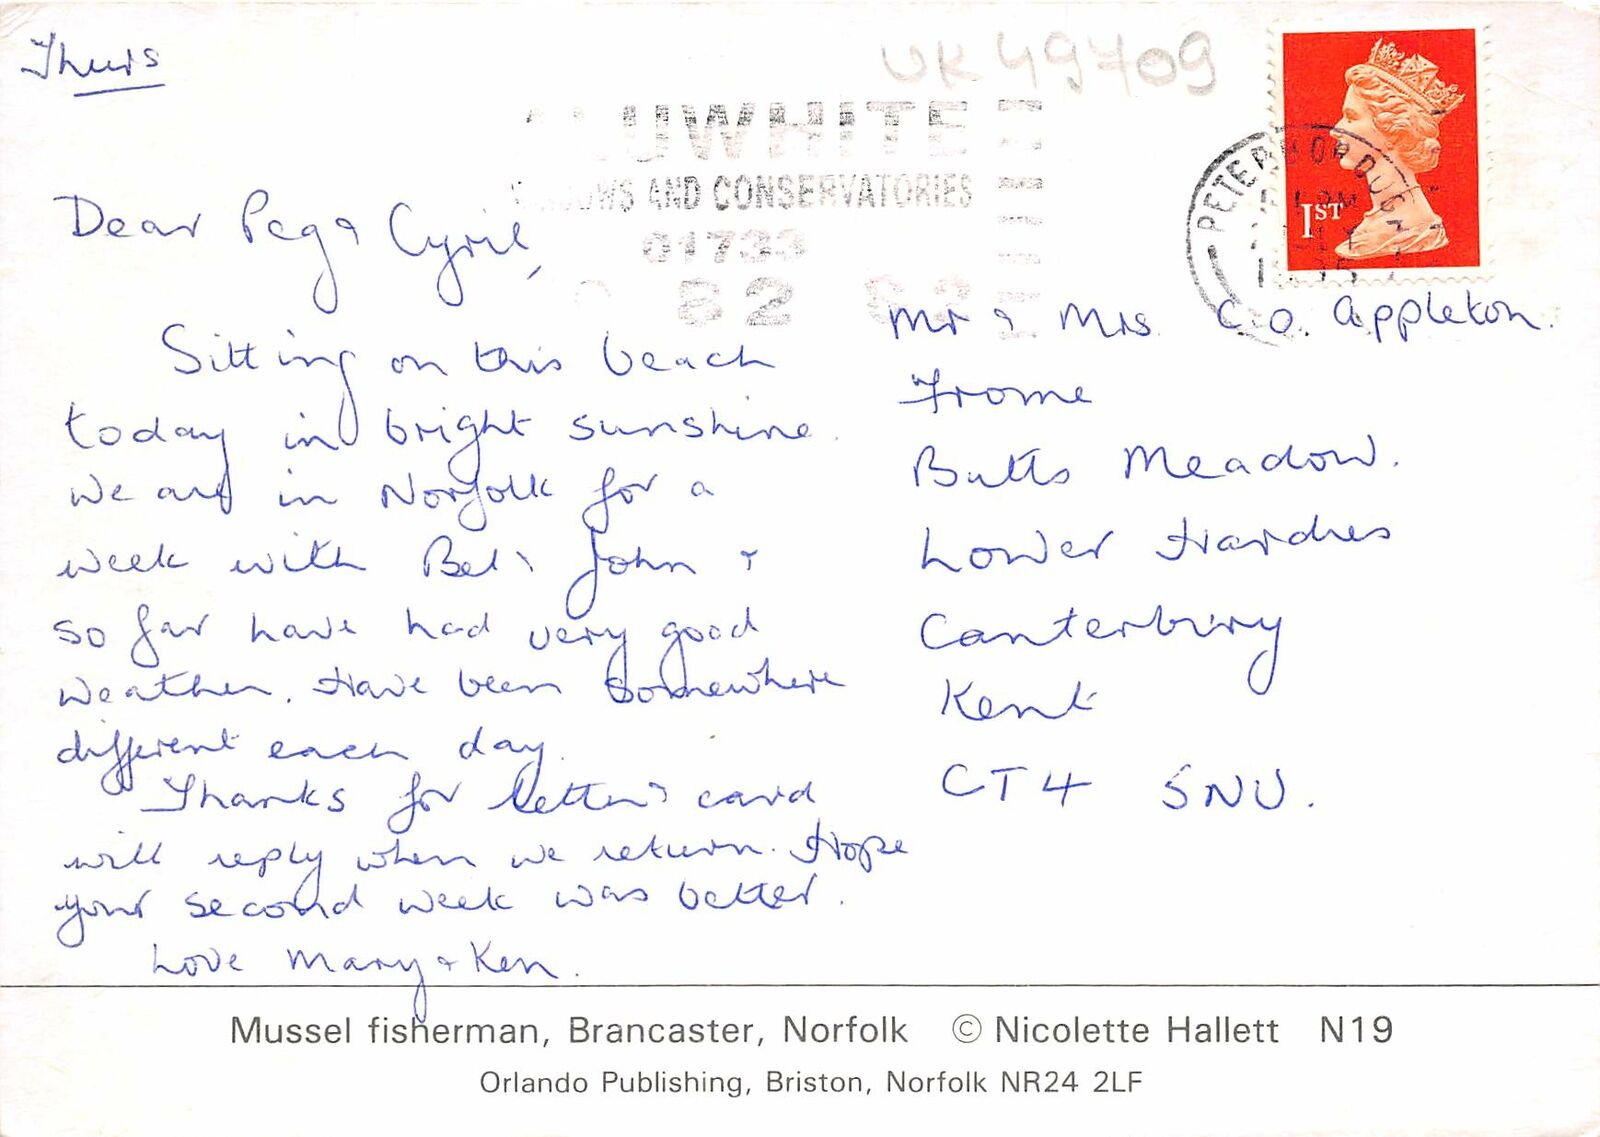 Thurs
UK 49709
UWHITE
AND CONSERVATORIES
01733
82 62
PETERBOROUGH
1ST
Dear Peg & Cyril,
Sitting on this beach
today in bright sunshine.
We are in Norfolk for a
week with Bel & John &
so far have had very good
weather. Have been somewhere
different each day.
Thanks for letter & card
will reply when we return. Hope
your second week was better.
Love Mary & Ken.
Mr & Mrs. C.O. Appleton.
Frome
Butts Meadow.
Lower Hardres
Canterbury
Kent
CT4 5NU.
Mussel fisherman, Brancaster, Norfolk © Nicolette Hallett N19
Orlando Publishing, Briston, Norfolk NR24 2LF